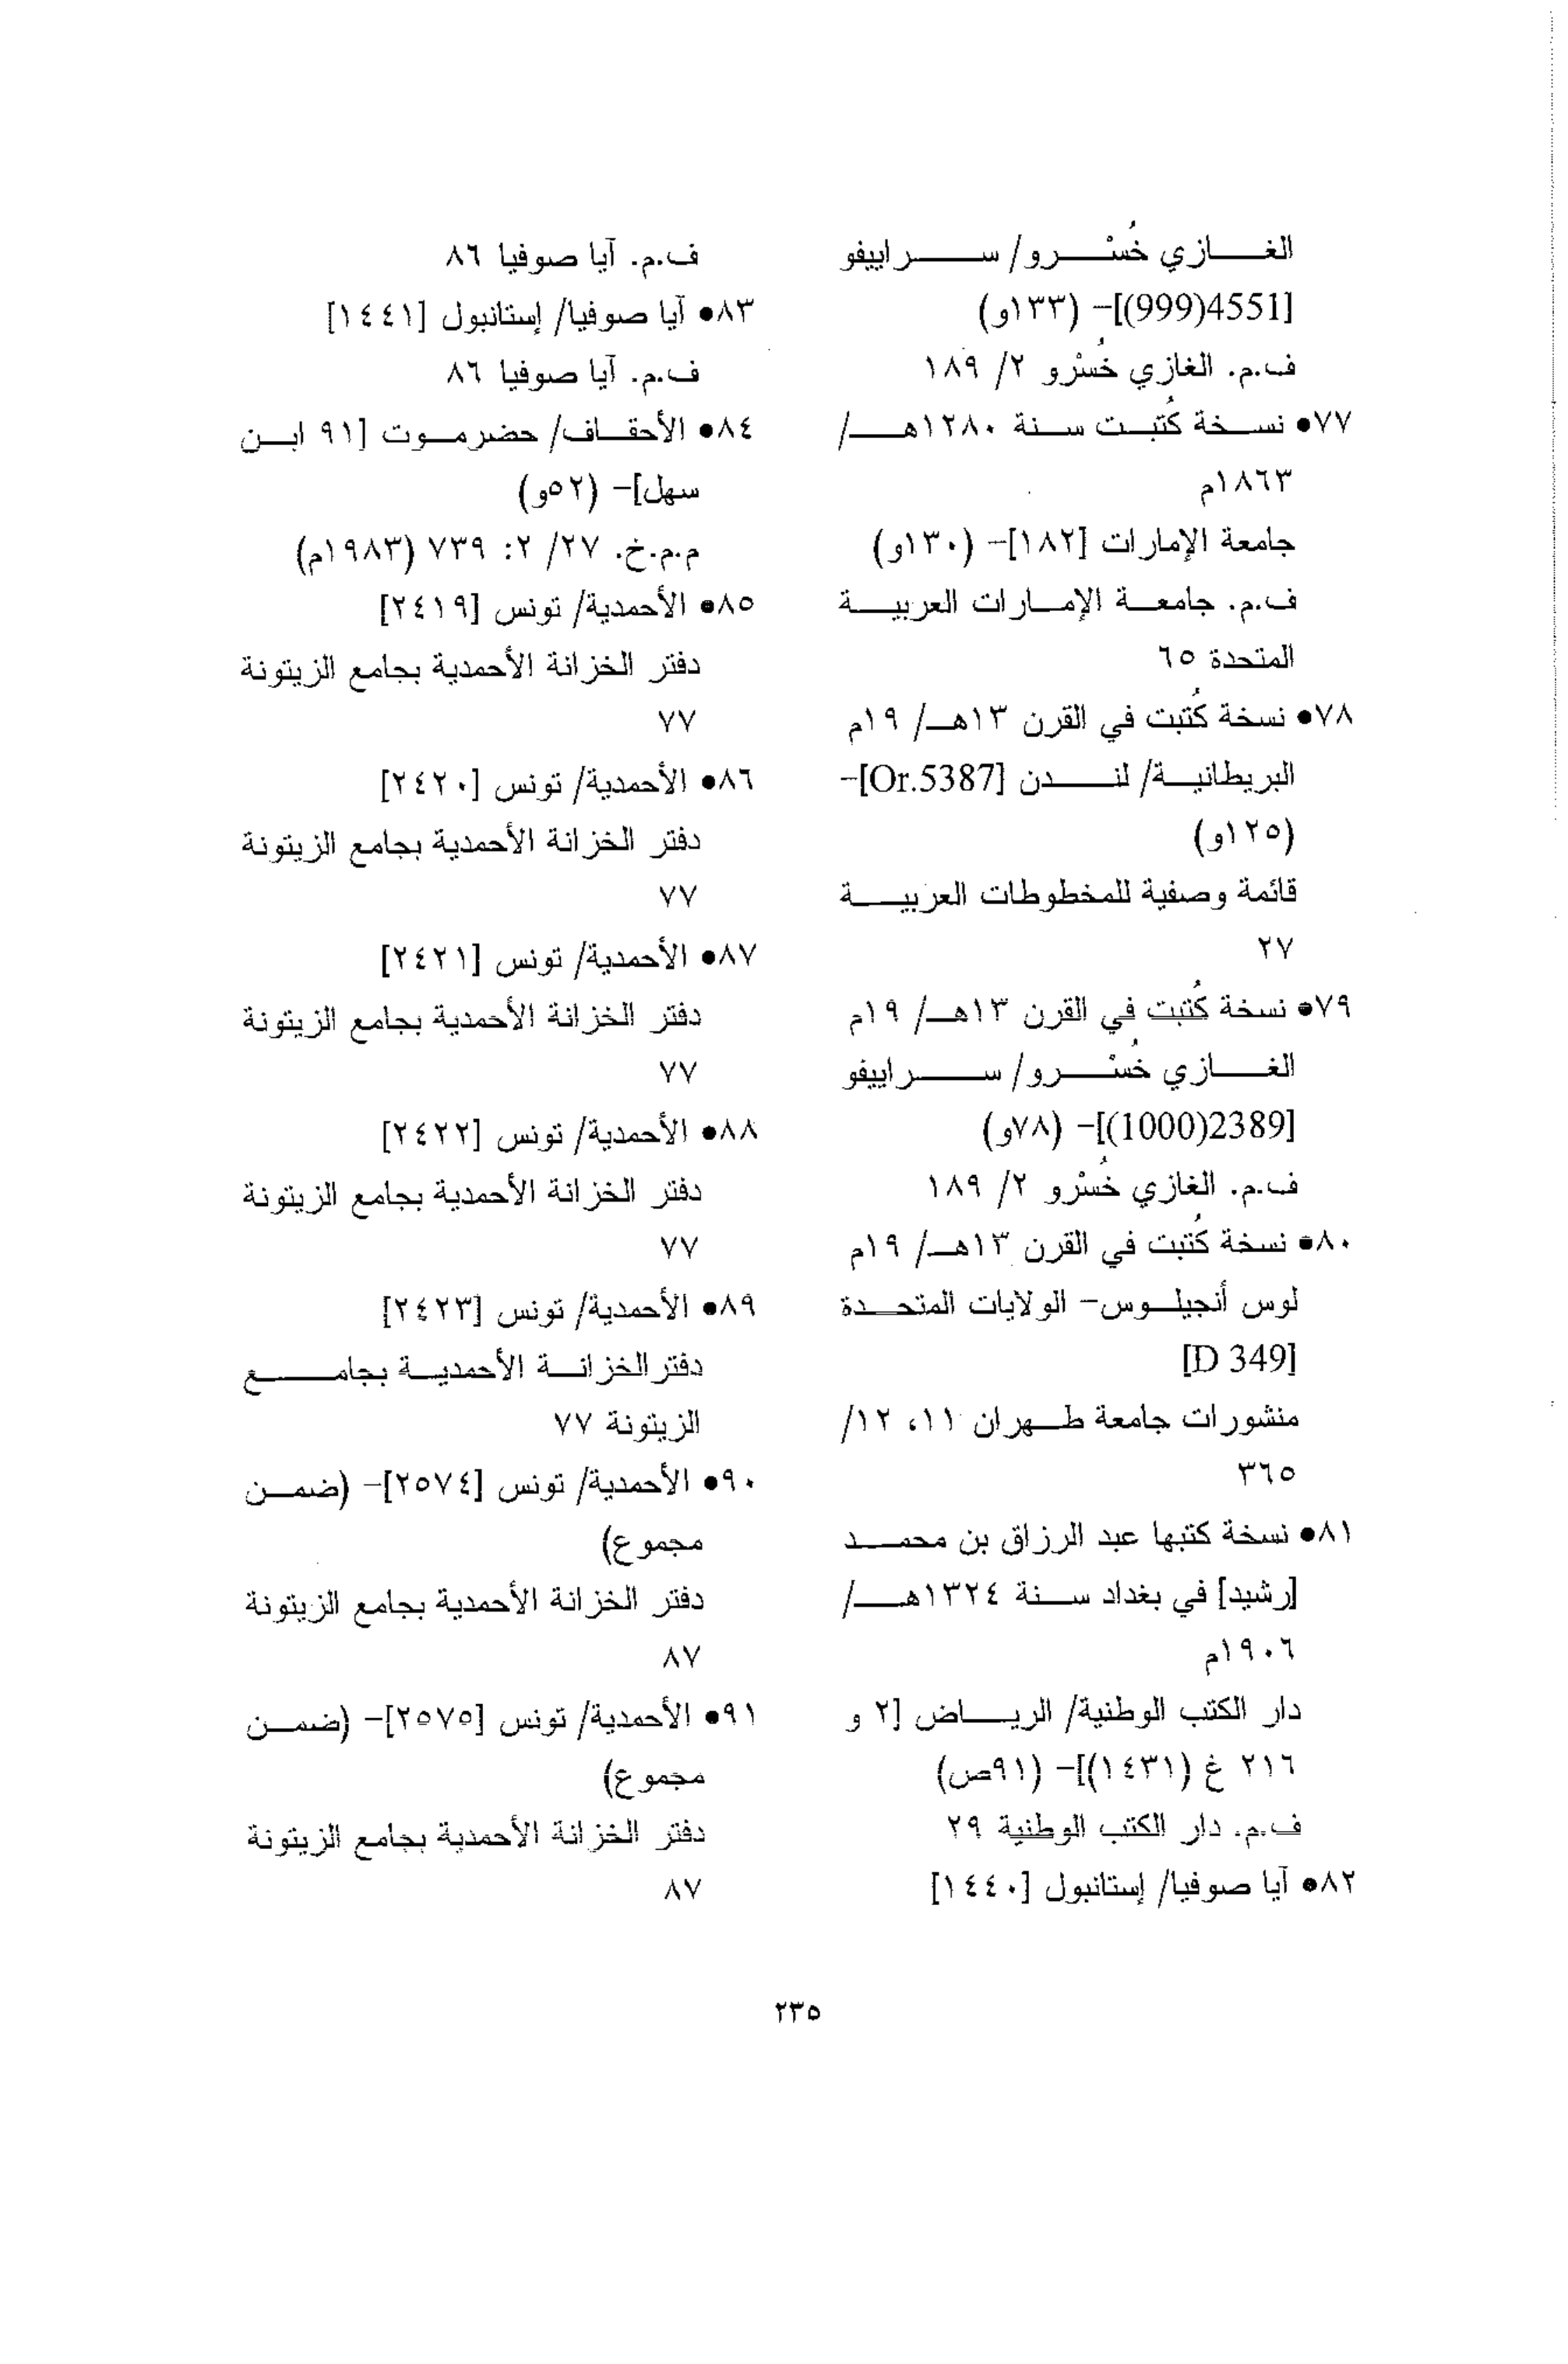 الغازي خُسْرو/ سراييفو
[4551(999)]- (١٣٣و)
ف.م. الغازي خُسْرو ٢/ ١٨٩
٧٧• نسخة كُتبت سنة ١٢٨٠هـ/
١٨٦٣م
جامعة الإمارات [١٨٢]- (١٣٠و)
ف.م. جامعة الإمارات العربية
المتحدة ٦٥
٧٨• نسخة كُتبت في القرن ١٣هـ/ ١٩م
البريطانية/ لندن [Or.5387]-
(١٢٥و)
قائمة وصفية للمخطوطات العربية
٢٧
٧٩• نسخة كُتبت في القرن ١٣هـ/ ١٩م
الغازي خُسْرو/ سراييفو
[2389(1000)]- (٧٨و)
ف.م. الغازي خُسْرو ٢/ ١٨٩
٨٠• نسخة كُتبت في القرن ١٣هـ/ ١٩م
لوس أنجيلوس- الولايات المتحدة
[D 349]
منشورات جامعة طهران ١١، ١٢/
٣٦٥
٨١• نسخة كتبها عبد الرزاق بن محمد
[رشيد] في بغداد سنة ١٣٢٤هـ/
١٩٠٦م
دار الكتب الوطنية/ الرياض [٢ و
٢١٦ غ (١٤٣١)]- (٩١ص)
ف.م. دار الكتب الوطنية ٢٩
٨٢• آيا صوفيا/ إستانبول [١٤٤٠]
ف.م. آيا صوفيا ٨٦
٨٣• آيا صوفيا/ إستانبول [١٤٤١]
ف.م. آيا صوفيا ٨٦
٨٤• الأحقاف/ حضرموت [٩١ ابن
سهل]- (٥٢و)
م.م.خ. ٢٧/ ٢: ٧٣٩ (١٩٨٣م)
٨٥• الأحمدية/ تونس [٢٤١٩]
دفتر الخزانة الأحمدية بجامع الزيتونة
٧٧
٨٦• الأحمدية/ تونس [٢٤٢٠]
دفتر الخزانة الأحمدية بجامع الزيتونة
٧٧
٨٧• الأحمدية/ تونس [٢٤٢١]
دفتر الخزانة الأحمدية بجامع الزيتونة
٧٧
٨٨• الأحمدية/ تونس [٢٤٢٢]
دفتر الخزانة الأحمدية بجامع الزيتونة
٧٧
٨٩• الأحمدية/ تونس [٢٤٢٣]
دفتر الخزانة الأحمدية بجامع
الزيتونة ٧٧
٩٠• الأحمدية/ تونس [٢٥٧٤]- (ضمن
مجموع)
دفتر الخزانة الأحمدية بجامع الزيتونة
٨٧
٩١• الأحمدية/ تونس [٢٥٧٥]- (ضمن
مجموع)
دفتر الخزانة الأحمدية بجامع الزيتونة
٨٧
٢٣٥